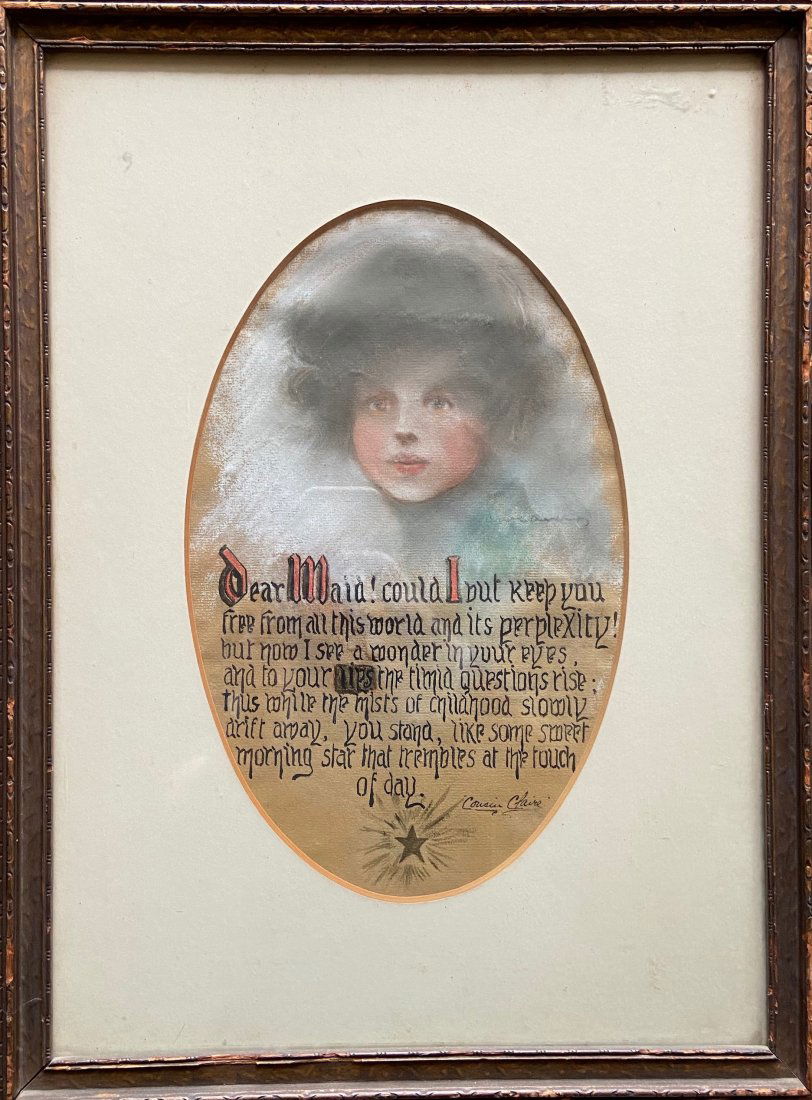 Dear Maid! could I but keep you
free from all this world and its perplexity!
but now I see a wonder in your eyes,
and to your lips the timid questions rise.
thus while the mists of childhood slowly
drift away, you stand, like some sweet
morning star that trembles at the touch
of day.
Cousin Claire